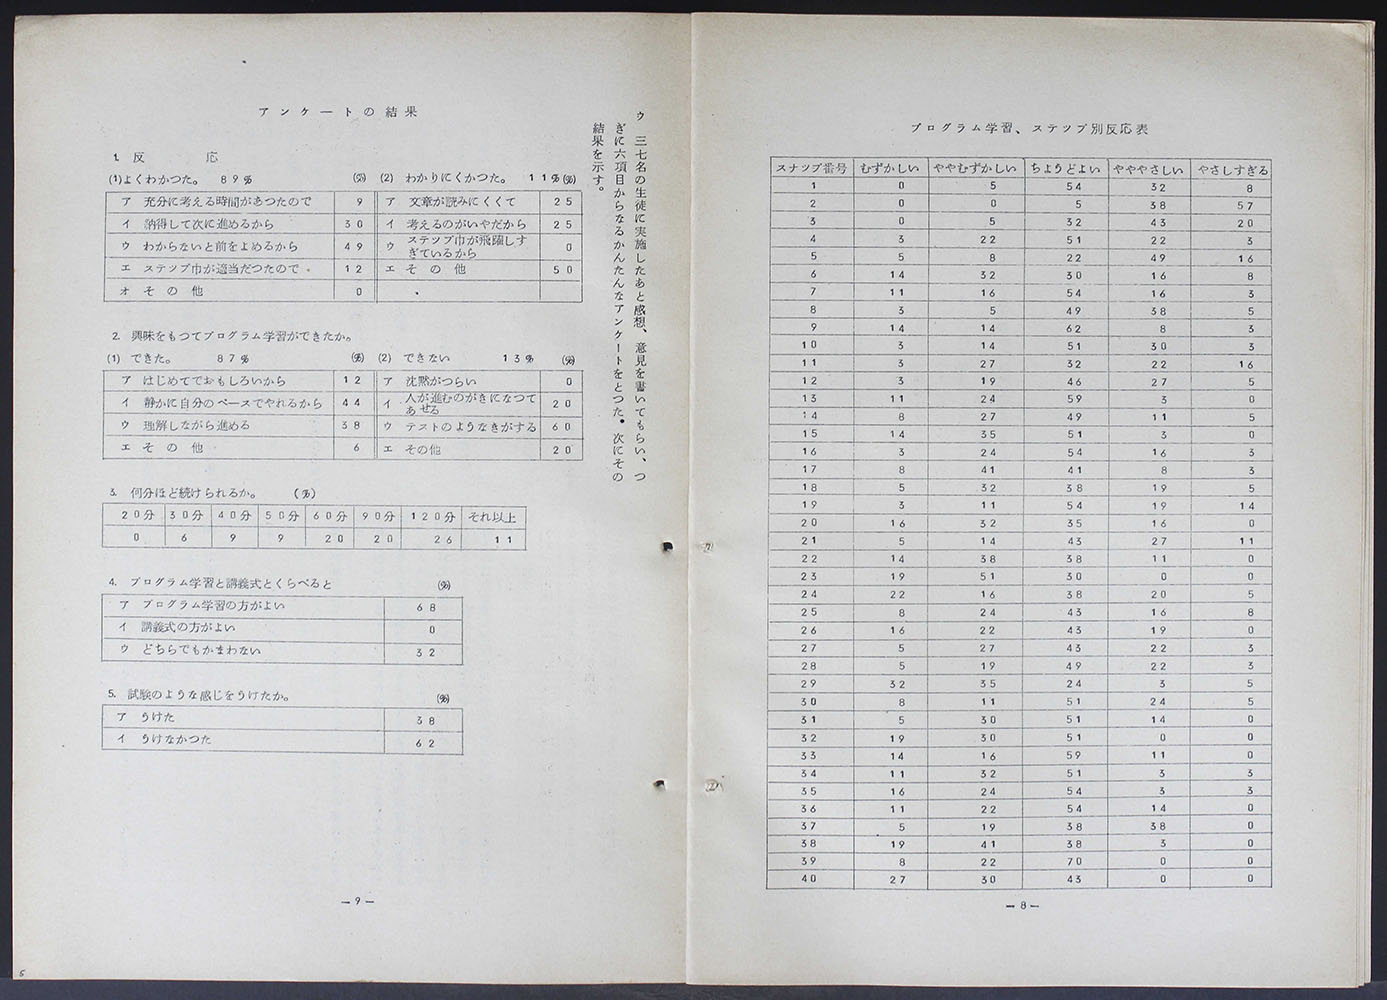 プログラム学習、ステツプ別反応表
スナツプ番号 むずかしい ややむずかしい ちょうどよい やややさしい やさしすぎる
1 0 5 54 32 8
2 0 0 5 38 57
3 0 5 32 43 20
4 3 22 51 22 3
5 5 8 22 49 16
6 14 32 30 16 8
7 11 16 54 16 3
8 3 5 49 38 5
9 14 14 62 8 3
10 3 14 51 30 3
11 3 27 32 22 16
12 3 19 46 27 5
13 11 24 59 3 0
14 8 27 49 11 5
15 14 35 51 3 0
16 3 24 54 16 3
17 8 41 41 8 3
18 5 32 38 19 5
19 3 11 54 19 14
20 16 32 35 16 0
21 5 14 43 27 11
22 14 38 38 11 0
23 19 51 30 0 0
24 22 16 38 20 5
25 8 24 43 16 8
26 16 22 43 19 0
27 5 27 43 22 3
28 5 19 49 22 3
29 32 35 24 3 5
30 8 11 51 24 5
31 5 30 51 14 0
32 19 30 51 0 0
33 14 16 59 11 0
34 11 32 51 3 3
35 16 24 54 3 3
36 11 22 54 14 0
37 5 19 38 38 0
38 19 41 38 3 0
39 8 22 70 0 0
40 27 30 43 0 0
—8—
ウ 三七名の生徒に実施したあと感想、意見を書いてもらい、つ
ぎに六項目からなるかんたんなアンケートをとつた。次にその
結果を示す。
アンケートの結果
1. 反応
(1)よくわかつた。 89% (%) (2) わかりにくかつた。 11% (%)
ア 充分に考える時間があつたので 9 ア 文章が読みにくくて 25
イ 納得して次に進めるから 30 イ 考えるのがいやだから 25
ウ わからないと前をよめるから 49 ウ ステツプ巾が飛躍しす
ぎているから 0
エ ステツプ巾が適当だつたので 12 エ その他 50
オ その他 0
2. 興味をもつてプログラム学習ができたか。
(1) できた。 87% (%) (2) できない 13% (%)
ア はじめてでおもしろいから 12 ア 沈黙がつらい 0
イ 静かに自分のペースでやれるから 44 イ 人が進むのがきになつて
あせる 20
ウ 理解しながら進める 38 ウ テストのようなきがする 60
エ その他 6 エ その他 20
3. 何分ほど続けられるか。 (%)
20分 30分 40分 50分 60分 90分 120分 それ以上
0 6 9 9 20 20 26 11
4. プログラム学習と講義式とくらべると (%)
ア プログラム学習の方がよい 68
イ 講義式の方がよい 0
ウ どちらでもかまわない 32
5. 試験のような感じをうけたか。 (%)
ア うけた 38
イ うけなかつた 62
—9—
5